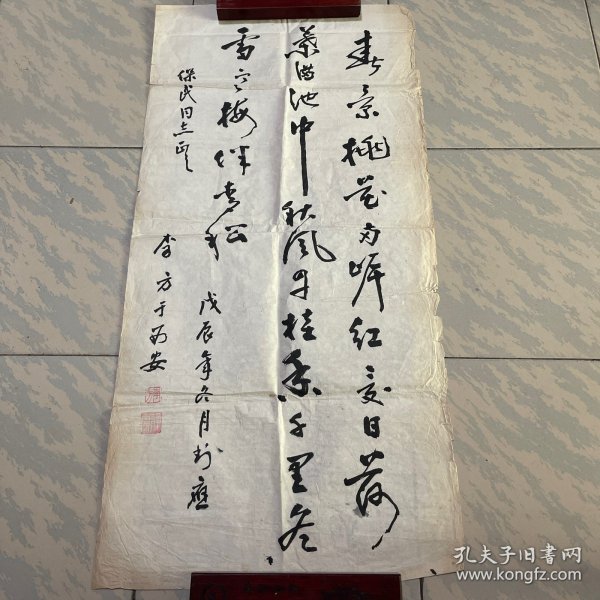 春景桃花两岸红夏日荷
叶满池中秋风丹桂香千里冬
雪寒梅伴老松
保民同志正
戊辰年冬月
李方于西安
孔夫子旧书网
www.kongfz.com